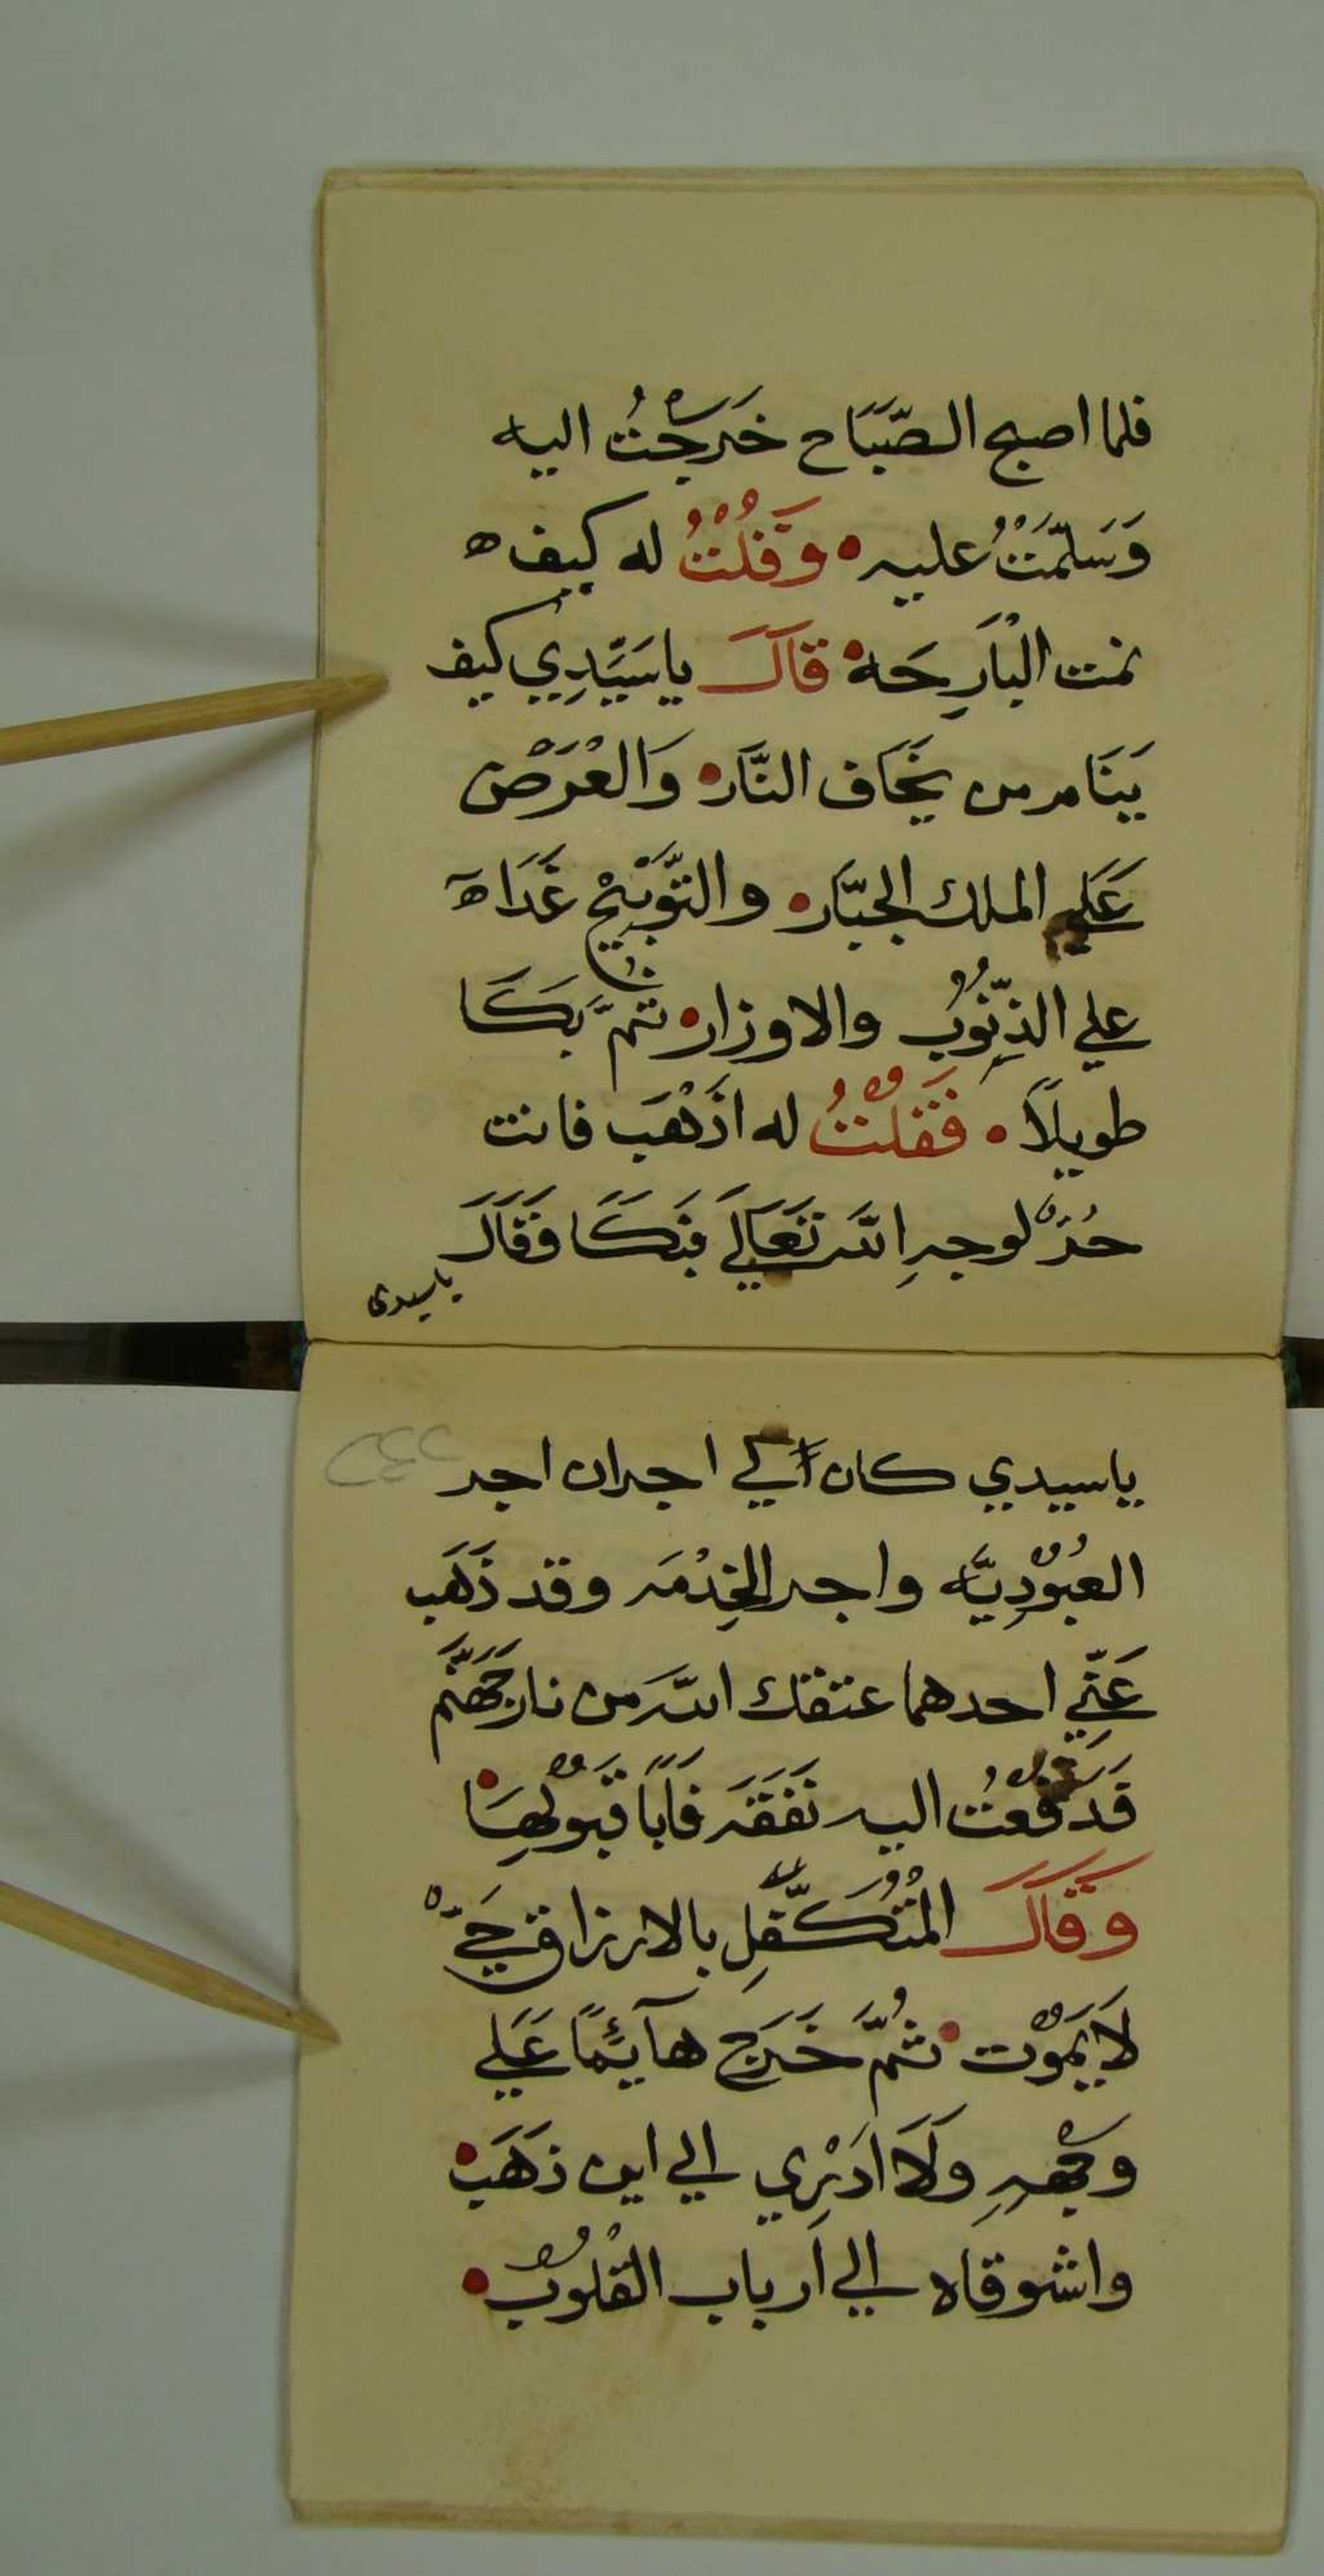 فلما اصبح الصَّبَاح خَرَجْتُ اليه
وَسَلَّمْتُ عليه • وَقُلْتُ له كيف ه
نمت الْبَارِحَة • قَالَ ياسَيِّدِي كيف
يَنَام من يَخَاف النَّار • وَالْعَرْض
عَلَي الملك الجبَّار • والتَّوْبِيْخ غَدَاً
علي الذُّنُوْب والاوزار • ثُمَّ بَكَا
طويلاً • فَقُلْتُ له اذْهَب فانت
حُرٌّ لوجهِ الله تَعَالَي فبَكَا فَقَالَ
ياسيدى
ياسيدي كان لي اجران اجر
العُبُوْدِيَّه واجر الخِدْمَه وقد ذَهَب
عَنِّي احدهما عتقك الله من نار جَهَنَّم
قَدَفَعْتُ اليه نَفَقَه فَاَبَا قَبُوْلِهَا •
وَقَالَ المُتَكَفِّلِ بالارزاق حَيٌّ
لاَ يَمُوْت • ثُمَّ خَرَج هآئِمًا عَلَي
وجْهِهِ وَلَا اَدْرِي الي اين ذَهَب •
واشوقاه الي اَرباب الْقُلُوْب •